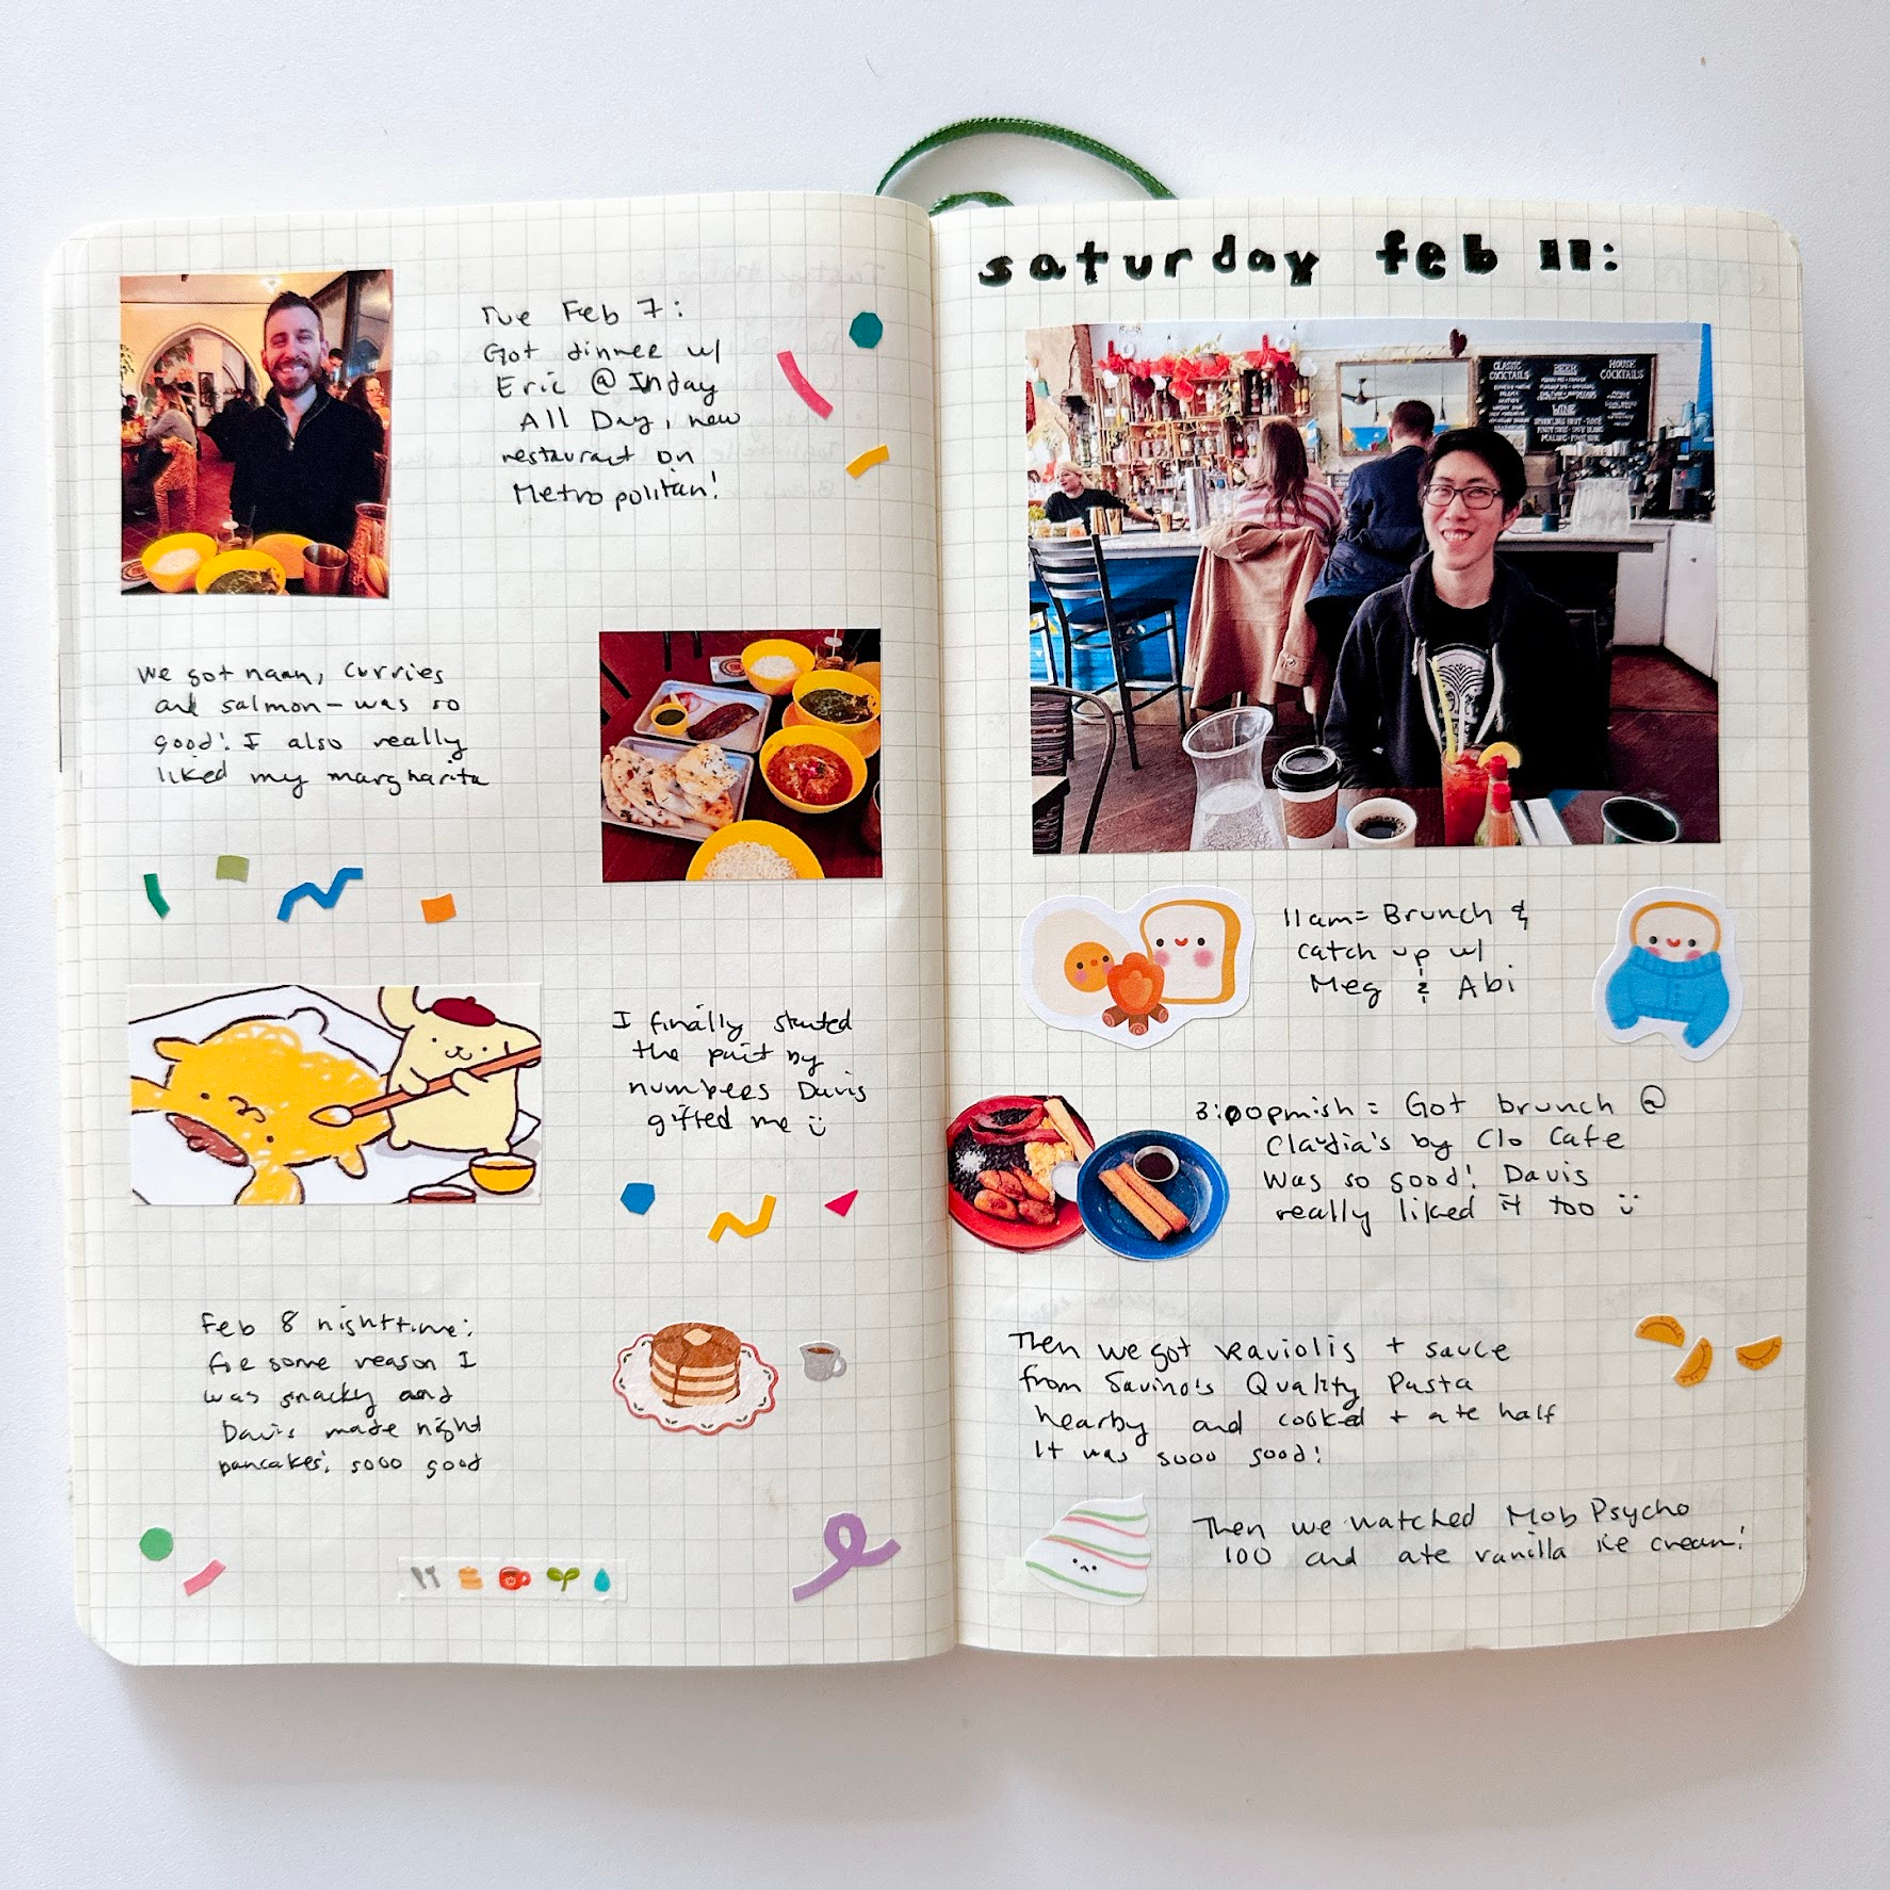 Tue Feb 7:
Got dinner w/
Eric @ Inday
All Day, new
restaurant on
Metropolitan!
We got naan, curries
and salmon- was so
good! I also really
liked my margharita
I finally started
the paint by
numbers Davis
gifted me
Feb 8 nighttime:
for some reason I
was snacky and
Davis made night
pancakes, sooo good
saturday feb 11:
CLASSIC
COCKTAILS
BEER
WINE
HOUSE
COCKTAILS
11am= Brunch &
catch up w/
Meg & Abi
3:00pmish = Got brunch @
Claudia's by Clo Cafe
Was so good! Davis
really liked it too
Then we got raviolis + sauce
from Savino's Quality Pasta
nearby and cooked + ate half
It was sooo good!
Then we watched Mob Psycho
100 and ate vanilla ice cream!